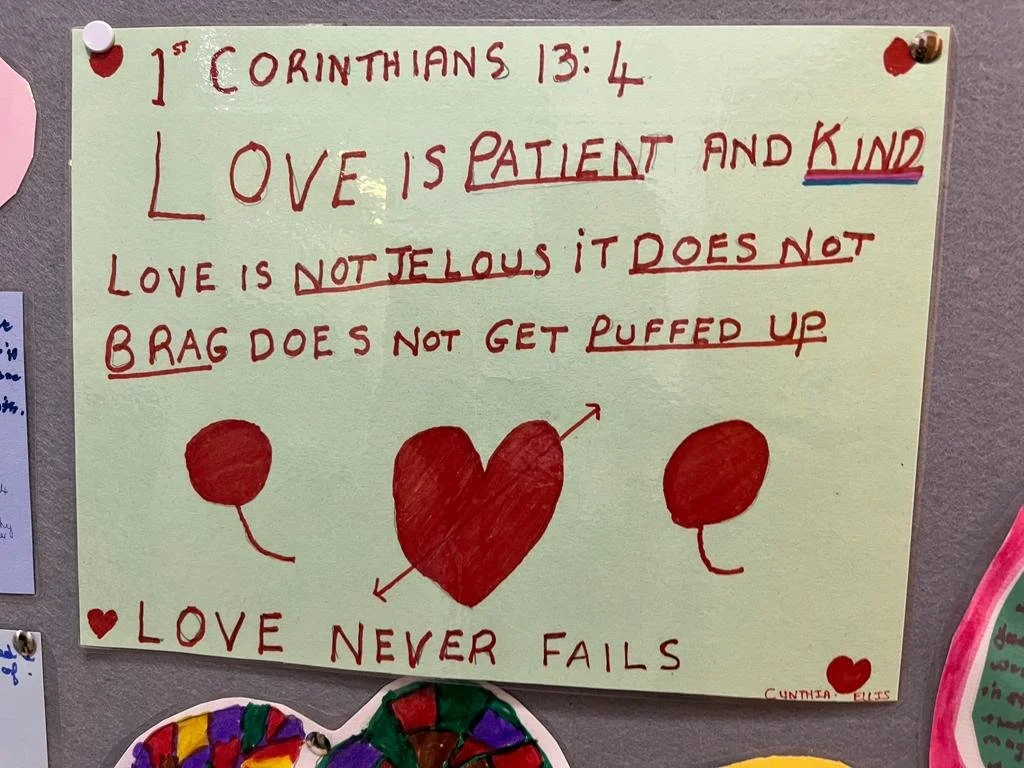 1ST CORINTHIANS 13:4
LOVE IS PATIENT AND KIND
LOVE IS NOT JELOUS iT DOES NOT
BRAG DOES NOT GET PUFFED UP
LOVE NEVER FAILS
CYNTHIA. ELLIS